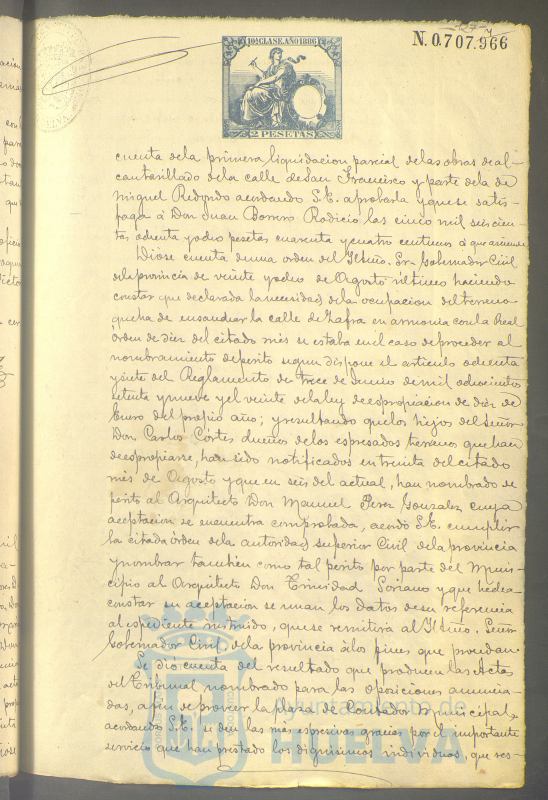 10ª CLASE. AÑO 1886
2 PESETAS
N. 0.707.966
cuenta dela primera liquidacion parcial delas obras de al-
cantarillado dela calle de San Francisco y parte dela de
Miguel Redondo acordando S.E. aprobarla y que se satis-
faga á Don Juan Borrero Rodicio las cinco mil seiscien-
tas ochenta y ocho pesetas cuarenta y cuatro centimos á que asciende
Diose cuenta de una orden del Yltmo. Sr. Gobernador Civil
dela provincia de veinte y ocho de Agosto último haciendo
constar que declarada la necesidad dela ocupacion del terreno
que ha de ensanchar la calle de Zafra en armonia con la Real
órden de diez del citado mes se estaba en el caso de proceder al
nombramiento de perito segun dispone el articulo ochenta
y siete del Reglamento de trece de Junio de mil ochocientos
setenta y nueve y el veinte dela ley de espropiacion de diez de
Enero del propio año; y resultando que los hijos del Señor
Don Carlos Córtes dueños delos espresados terrenos que han
de espropiarse, han sido notificados en treinta del citado
mes de Agosto y que en seis del actual, han nombrado de
perito al Arquitecto Don Manuel Perez Gonzalez cuya
aceptacion se encuentra comprobada, acordó S.E. cumplir
la citada órden dela autoridad superior Civil dela provincia
y nombrar tambien como tal perito por parte del Muni-
cipio al Arquitecto Don Trinidad Soriano y que hecha
constar su aceptacion se unan los datos de su referencia
al espediente instruido, que se remitirá al Yltmo. Señor
Gobernador Civil dela provincia á los fines que procedan.
Se dió cuenta del resultado que producen las Actas
del Tribunal nombrado para las oposiciones anuncia-
das, á fin de proveer la plaza de Contador Municipal,
acordando S.E. se den las mas espresivas gracias por el importante
servicio que han prestado los dignisimos individuos, que res-
Ayuntamiento de
HUELVA